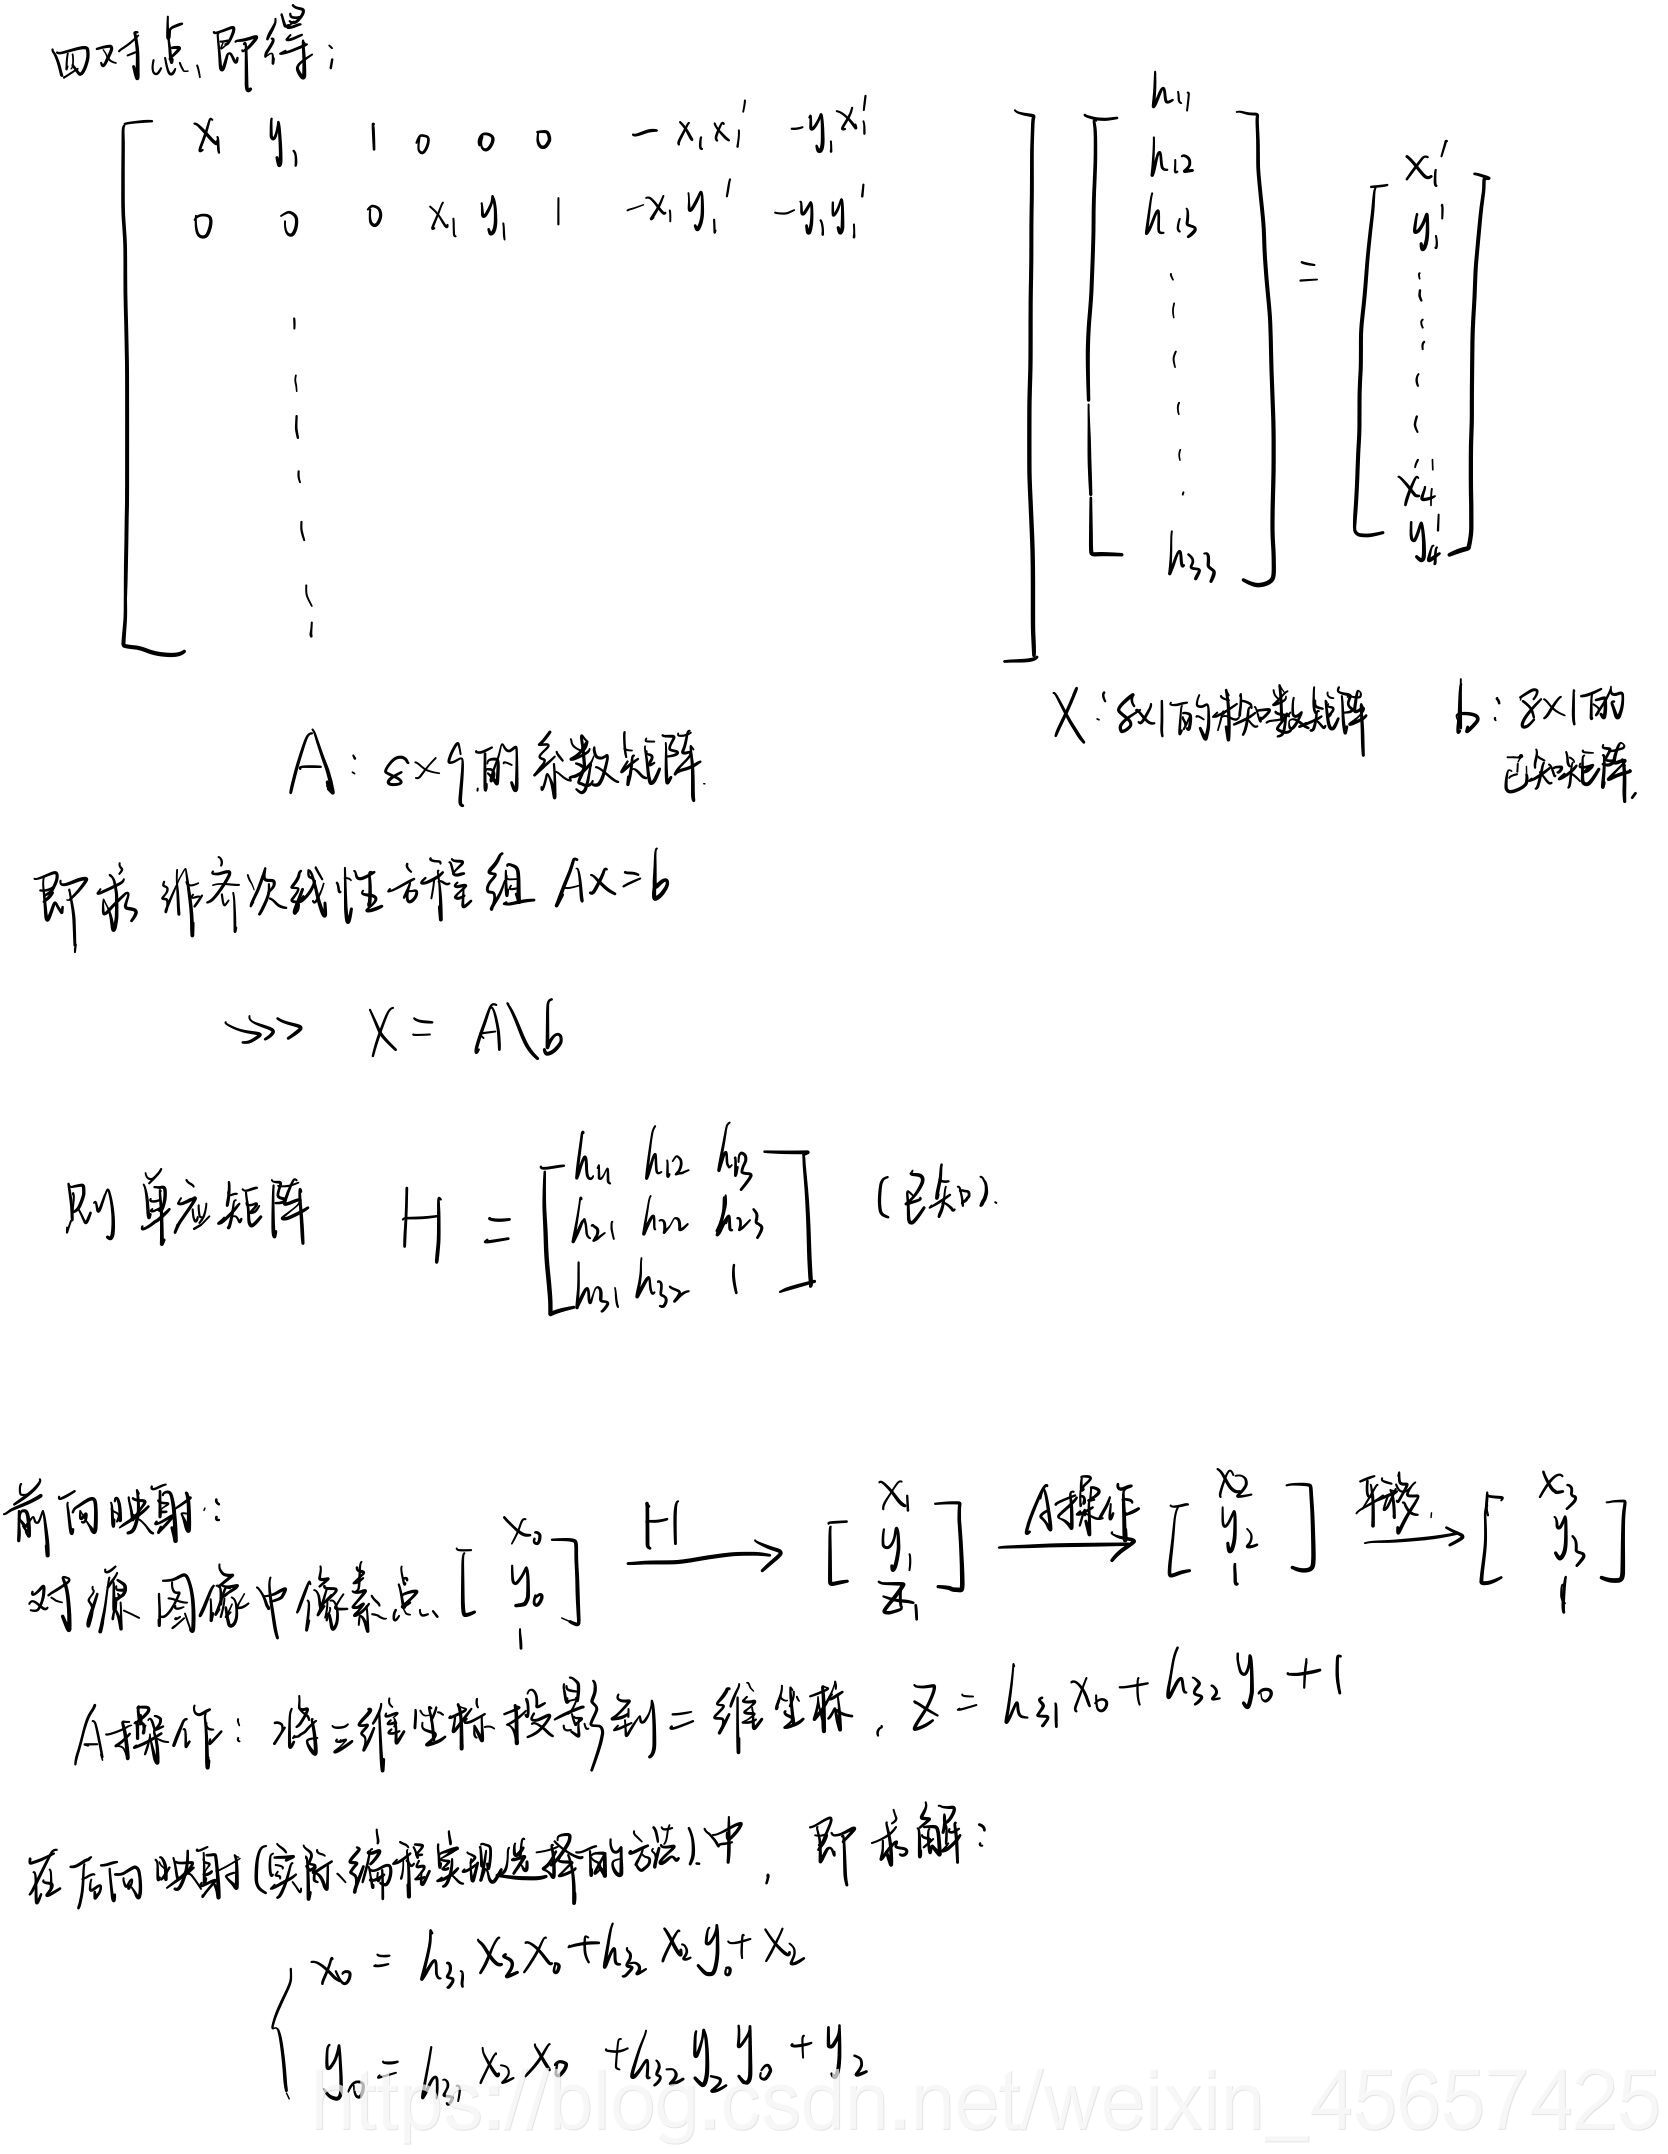 四对点,即得:
x₁ y₁ 1 0 0 0 -x₁x₁' -y₁x₁'
0 0 0 x₁ y₁ 1 -x₁y₁' -y₁y₁'
h₁₁
h₁₂
h₁₃
h₃₃
=
x₁'
y₁'
x₄'
y₄'
A: 8×9的系数矩阵
X: 8×1的未知数矩阵
b: 8×1的
已知矩阵.
即求非齐次线性方程组 AX=b
>>> X = A\b
则单应矩阵 H = [h₁₁ h₁₂ h₁₃
h₂₁ h₂₂ h₂₃
h₃₁ h₃₂ 1] (已知).
前向映射:
对源图像中像素点 [x₀ y₀ 1] H→ [x₁ y₁ z₁] A操作→ [x₂ y₂ 1] 平移→ [x₃ y₃ 1]
A操作: 将三维坐标投影到二维坐标, Z = h₃₁x₀+h₃₂y₀+1
在后向映射(实际编程实现选择的方法)中, 即求解:
x₀ = h₃₁x₂x₀+h₃₂x₂y₀+x₂
y₀ = h₃₁x₂x₀+h₃₂y₂y₀+y₂
https://blog.csdn.net/weixin_45657425